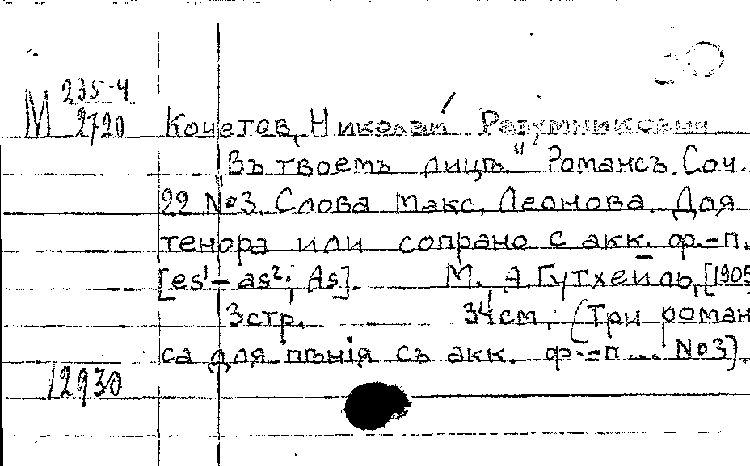 30
М 235-4
2720
Кочетов, Николай Разумникович
Въ твоемъ лицѣ" Романсъ. Соч.
22 №3. Слова Макс. Леонова. Для
тенора или сопрано с акк. ф.-п.
[es¹ - as²; As]. М. А. Гутхейль, [1905
3 стр. 34 см. (Три роман
са для пѣнія съ акк. ф.-п... №3).
12930